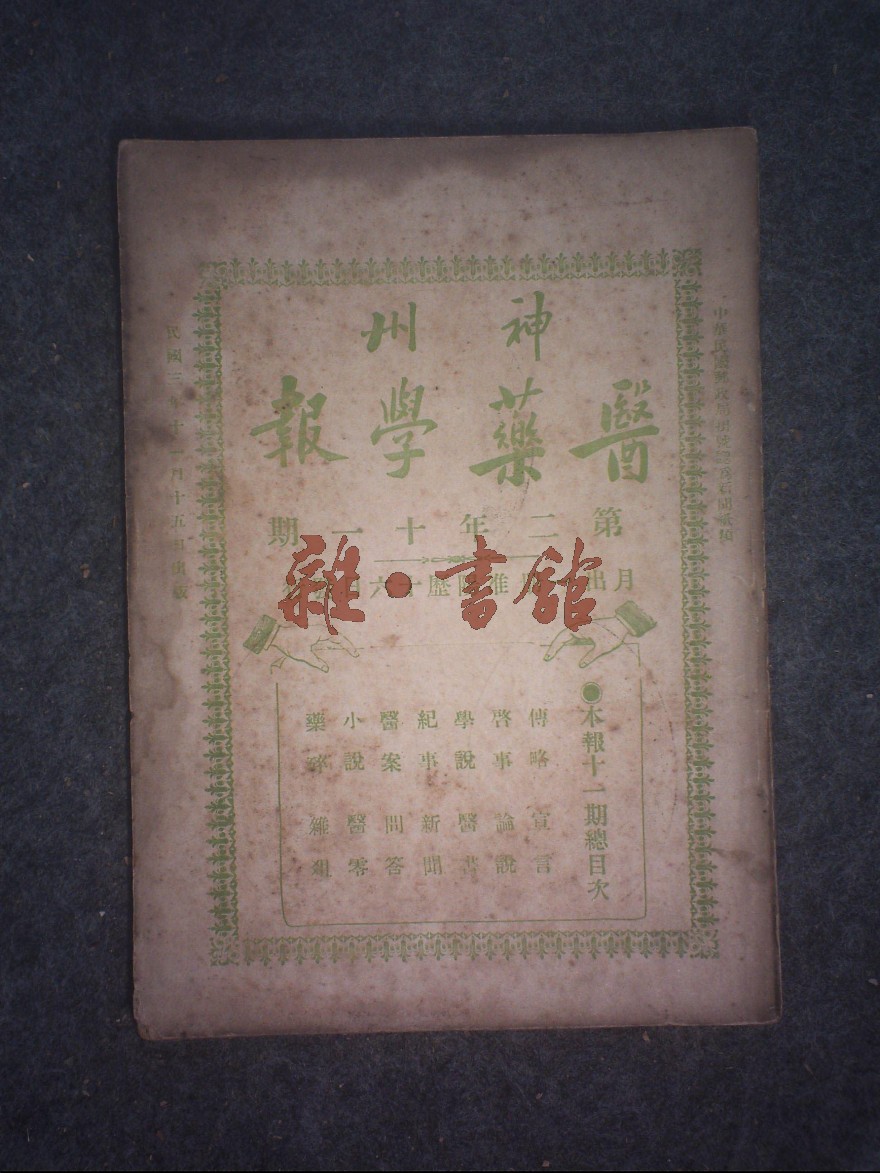 神州
醫藥學報
第二年十一期
月出
雜·書館
●本報十一期總目次
傳略 宣言
啓事 論說
學說 醫書
紀事 新聞
醫案 問答
小說 醫零
藥 雜俎
中華民國郵政
民國三年十一月十五日出版